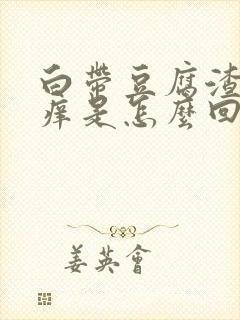 白帶豆腐渣
癢是怎麼回
姜英會